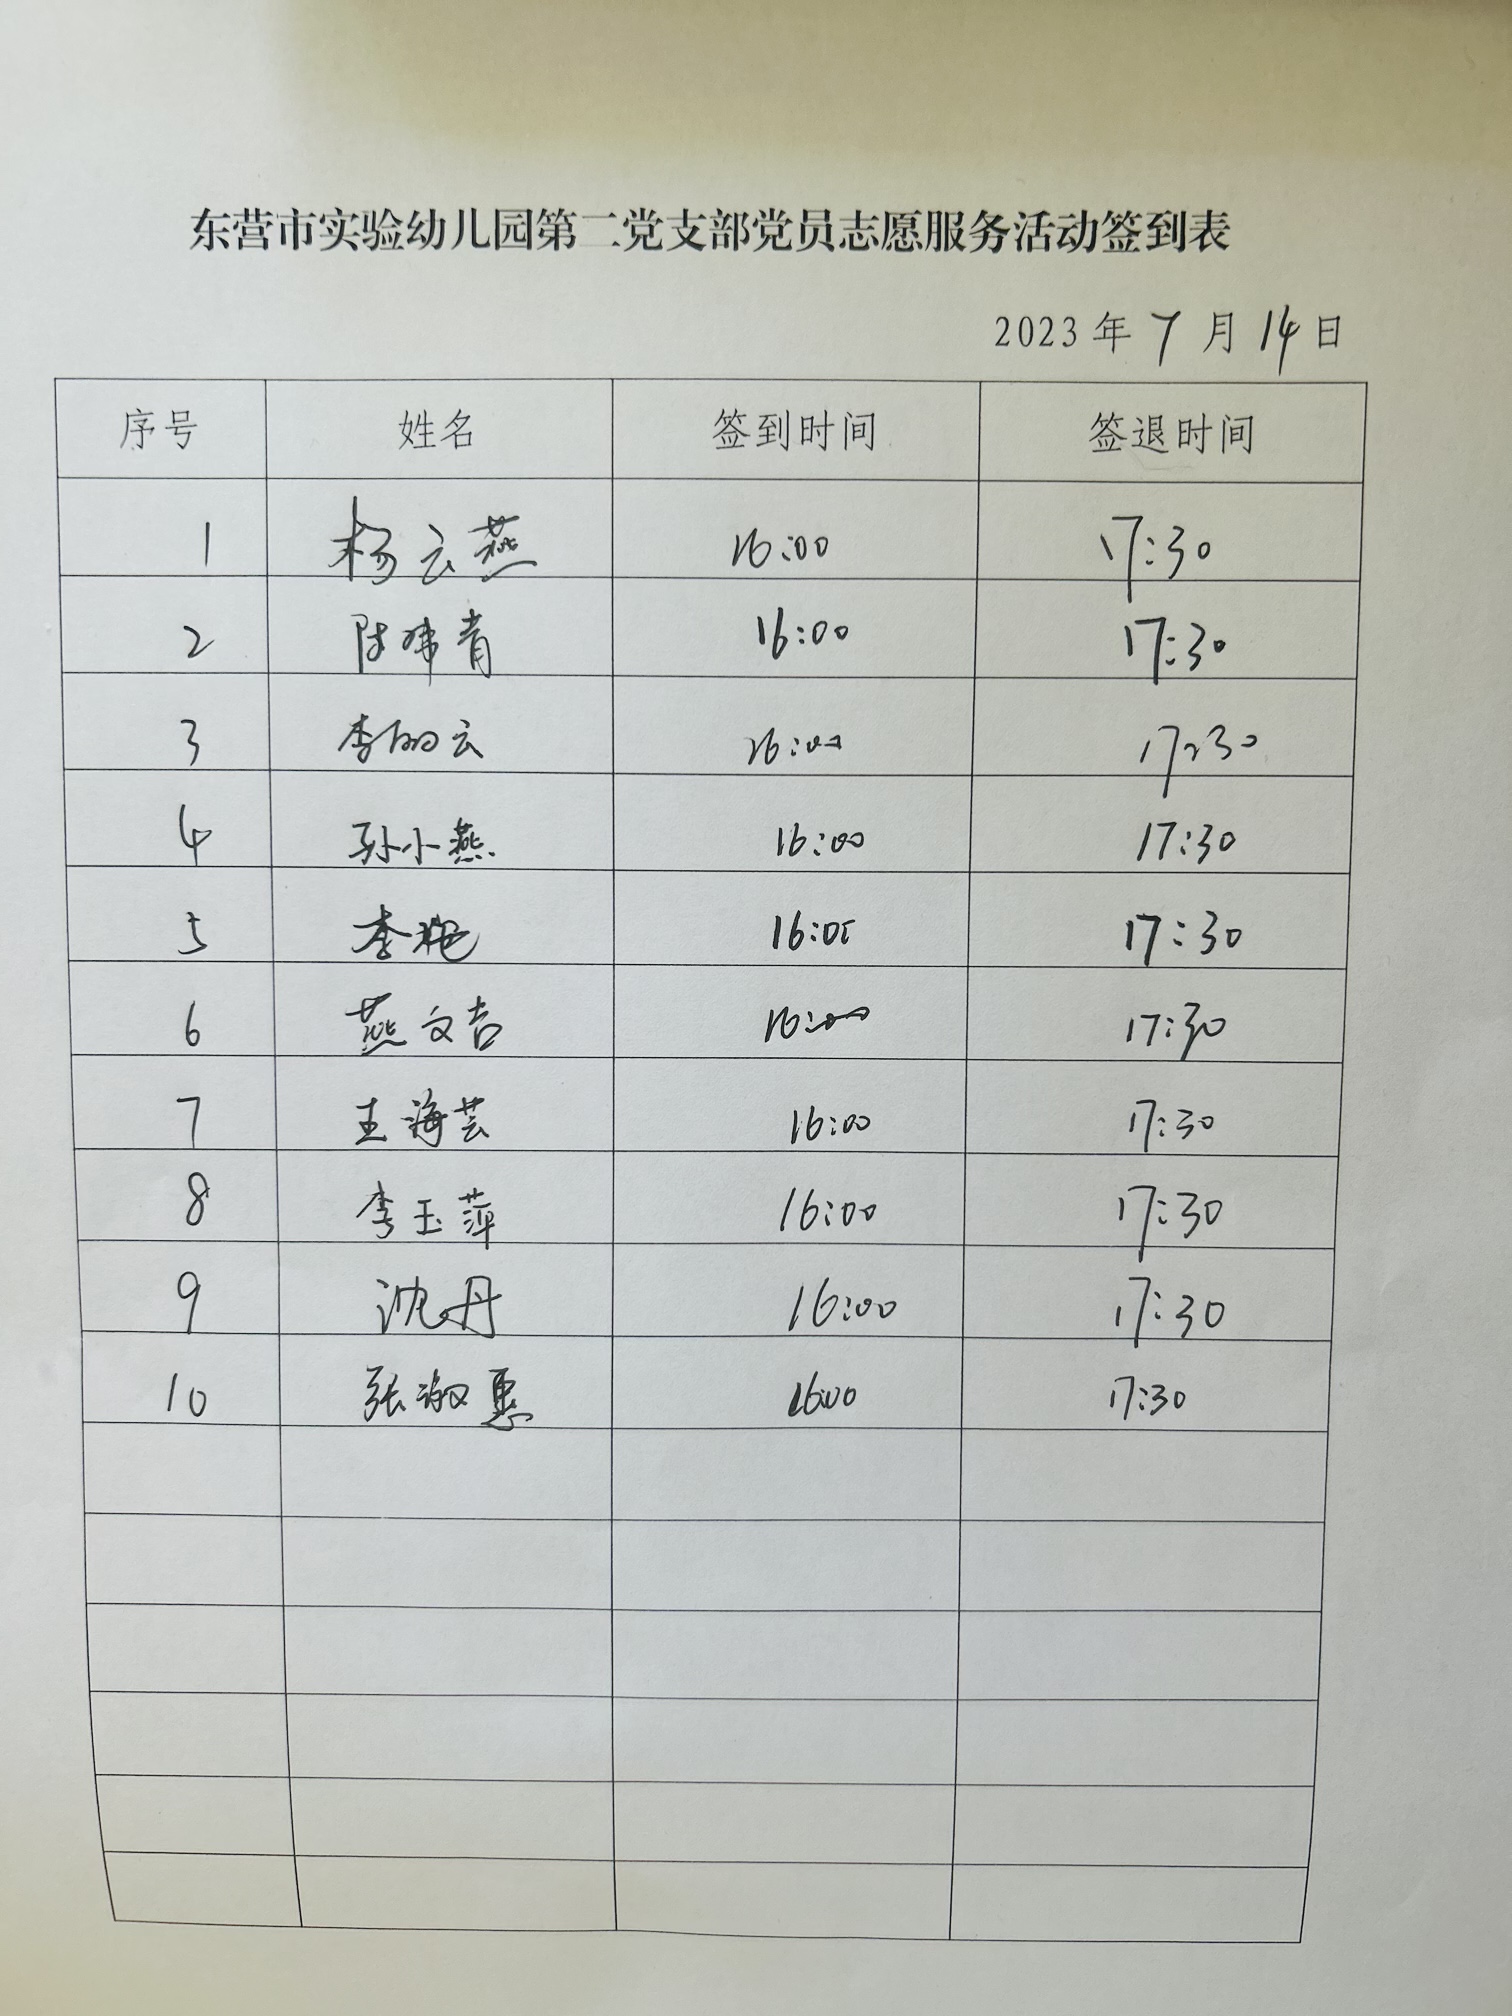 东营市实验幼儿园第二党支部党员志愿服务活动签到表
2023年7月14日
序号 姓名 签到时间 签退时间
1 杨云燕 16:00 17:30
2 陈玮青 16:00 17:30
3 李丽云 16:00 17:30
4 孙小燕 16:00 17:30
5 李艳 16:05 17:30
6 燕文吉 16:00 17:30
7 王海芸 16:00 17:30
8 李玉萍 16:00 17:30
9 沈丹 16:00 17:30
10 张淑惠 16:00 17:30